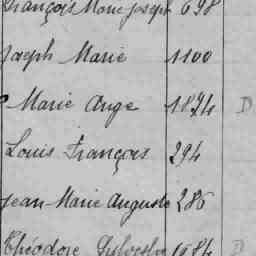 François Marie Joseph 698
Joseph Marie 1100
Marie Ange 1874 D
Louis François 294
Jean Marie Auguste 286
Théodore Sylvestre 1984 D